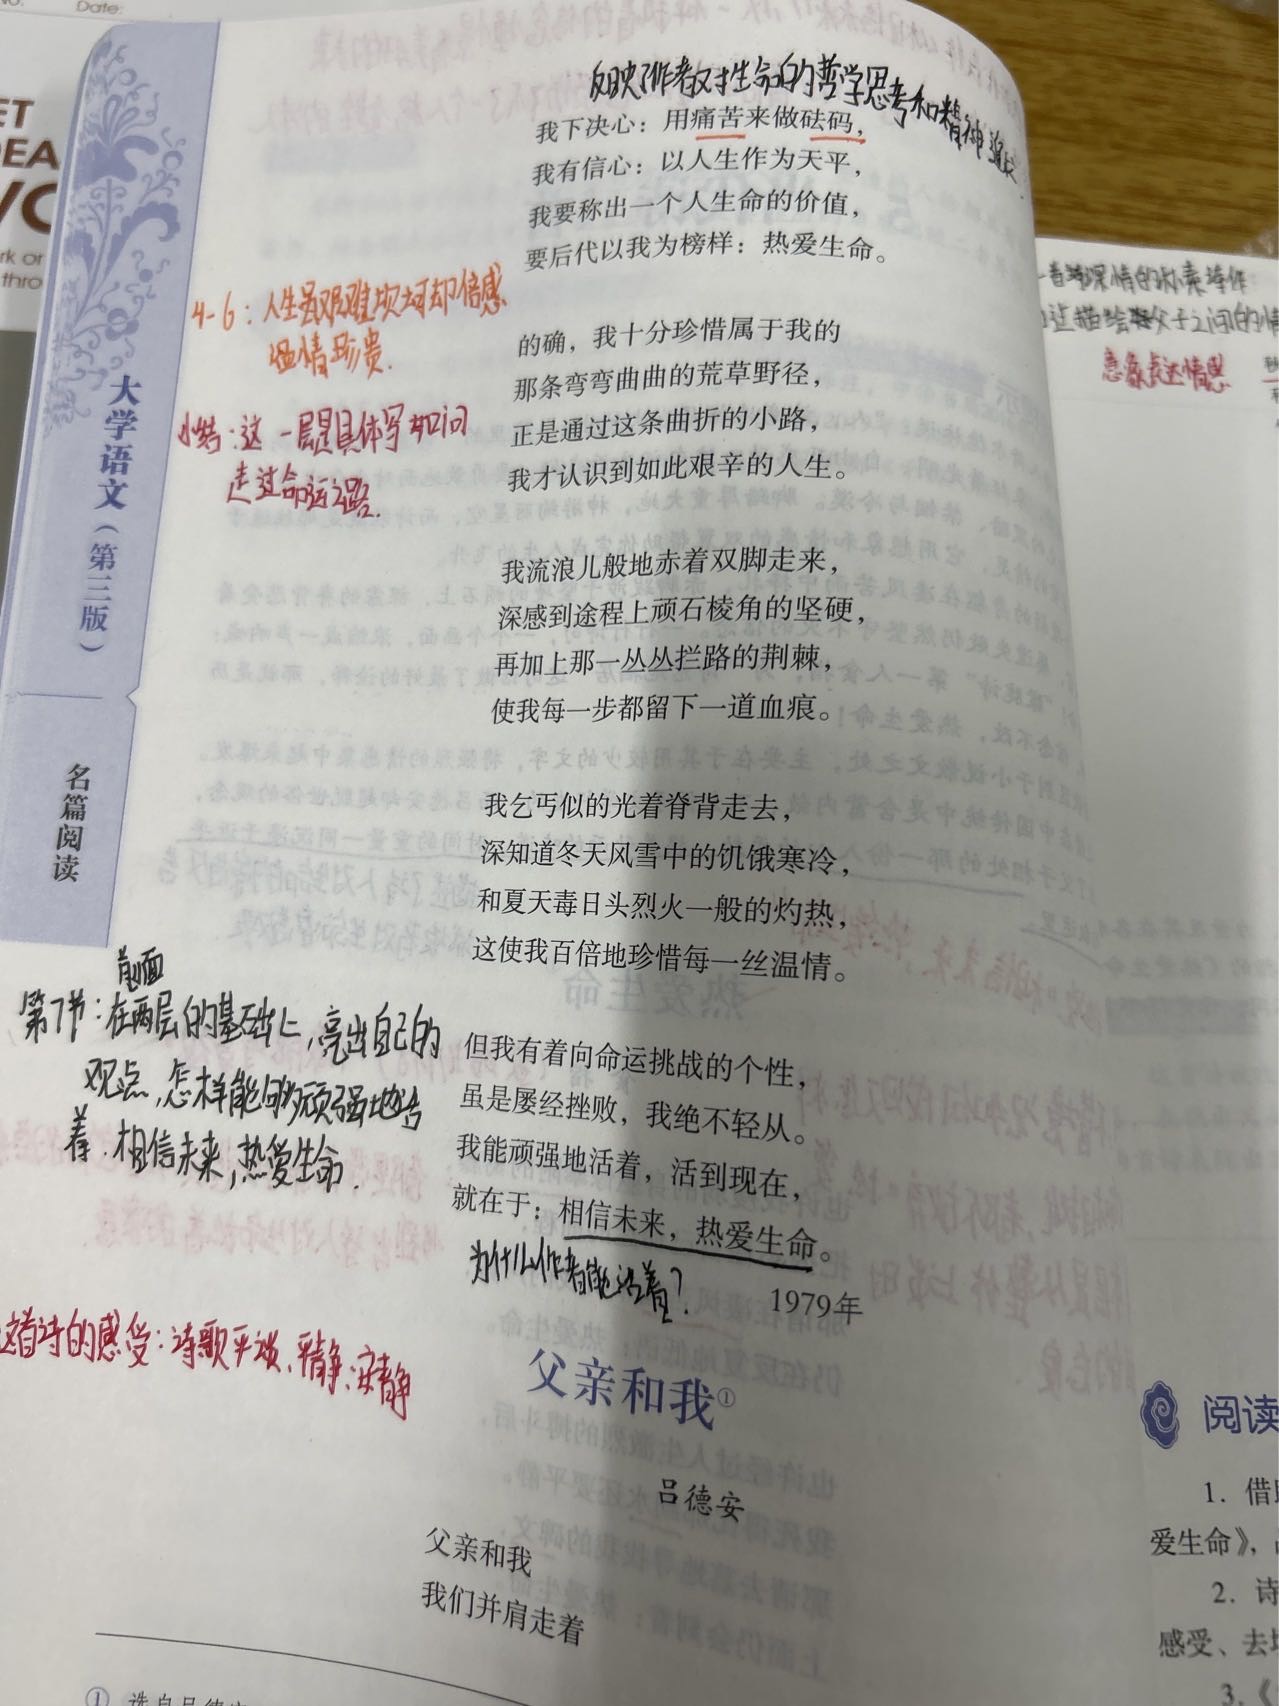 Date:
ET
DEA
rk or
thro
大学语文（第三版）
名篇阅读
反映了作者对生命的哲学思考和精神追求
我下决心：用痛苦来做砝码，
我有信心：以人生作为天平，
我要称出一个人生命的价值，
要后代以我为榜样：热爱生命。
4-6：人生虽艰难坎坷却倍感
温情珍贵.
的确，我十分珍惜属于我的
那条弯弯曲曲的荒草野径，
正是通过这条曲折的小路，
我才认识到如此艰辛的人生。
小结：这一层是具体写如何
走过命运之路.
我流浪儿般地赤着双脚走来，
深感到途程上顽石棱角的坚硬，
再加上那一丛丛拦路的荆棘，
使我每一步都留下一道血痕。
我乞丐似的光着脊背走去，
深知道冬天风雪中的饥饿寒冷，
和夏天毒日头烈火一般的灼热，
这使我百倍地珍惜每一丝温情。
前面
第7节：在两层的基础上，亮出自己的
观点，怎样能够顽强地活
着.相信未来，热爱生命.
但我有着向命运挑战的个性，
虽是屡经挫败，我绝不轻从。
我能顽强地活着，活到现在，
就在于：相信未来，热爱生命。
为什么作者能活着？
1979年
这首诗的感受：诗歌平淡、平静、安静
父亲和我①
吕德安
父亲和我
我们并肩走着
意象表达情感
阅读
1. 借
爱生命》，
2. 诗
感受、去
3.《